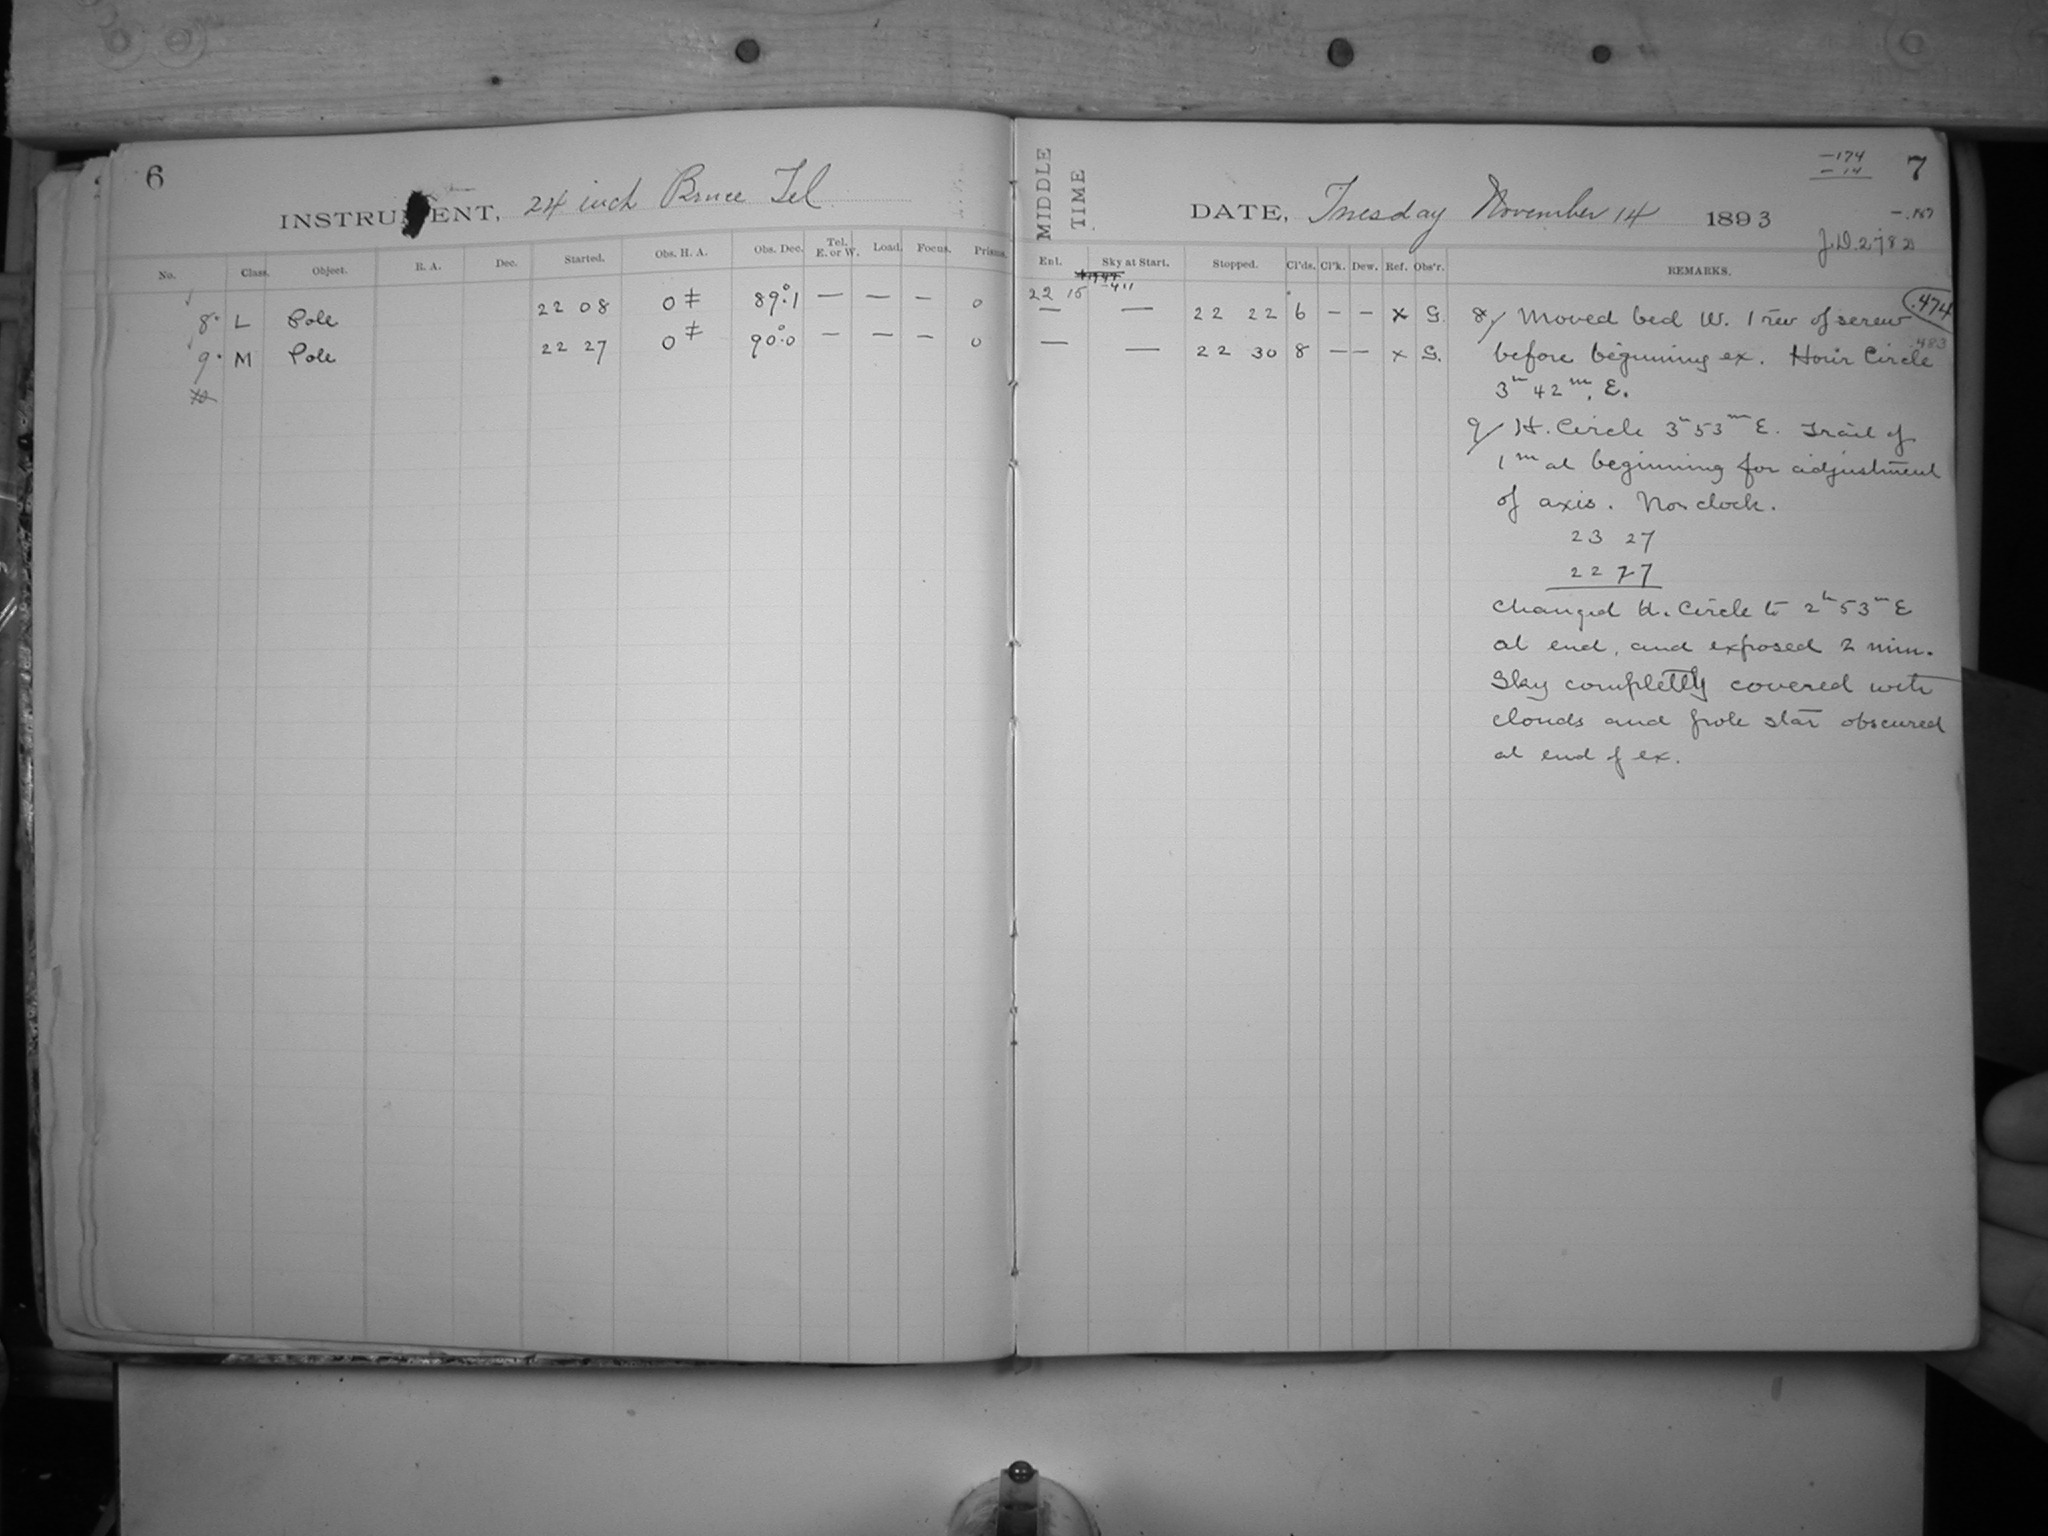 6
INSTRUMENT, 24 inch Bruce Tel.
No. Class. Object. R. A. Dec. Started. Obs. H. A. Obs. Dec. Tel. E. or W. Load. Focus. Prisms.
8. L Pole 22 08 0 ‡ 89°.1 — — — 0
9. M Pole 22 27 0 ‡ 90°.0 — — — 0
MIDDLE TIME
DATE, Tuesday November 14 1893
7
-174
-14
-.187
J.D. 2782
Ent. Sky at Start. Stopped. Cl'ds. Cl'k. Dew. Ref. Obs'r. REMARKS.
22 15 -411
— — 22 22 6 — — x G.
— — 22 30 8 — — x G.
.474
.483
8/ Moved bed W. 1 rev of screw
before beginning ex. Hour Circle
3h 42m. E.
9/ H. Circle 3h 53m E. Trail of
1m at beginning for adjustment
of axis. No clock.
23 27
22 27
Changed H. Circle to 2h 53m E
at end, and exposed 2 min.
Sky completely covered with
clouds and pole star obscured
at end of ex.